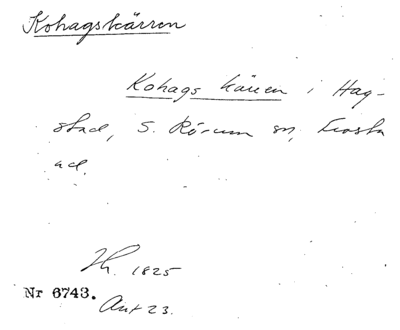 Kohagskärren
Kohags kärren i Hag-
stad, S. Rörum sn, Frosta
hd.
1825
Nr 6743.
Ant 23.